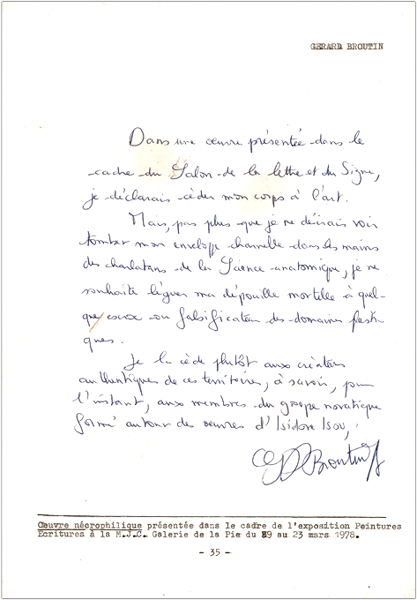 GERARD BROUTIN
Dans une œuvre présentée dans le
cadre du Salon de la lettre et du Signe,
je déclarais céder mon corps à l'art.
Mais, pas plus que je ne désirais voir
tomber mon enveloppe charnelle dans les mains
des charlatans de la Science anatomique, je ne
souhaite léguer ma dépouille mortelle à quel-
que escroc ou falsificateur des domaines
Je la cède plutôt aux créateurs
authentiques de ces territoires, à savoir, pour
l'instant, aux membres du groupe novatique
formé autour des oeuvres d'Isidore Isou,
Broutin
Œuvre nécrophilique présentée dans le cadre de l'exposition Peintures
Ecritures à la M.J.C. Galerie de la Pie du 9 au 23 mars 1978.
- 35 -